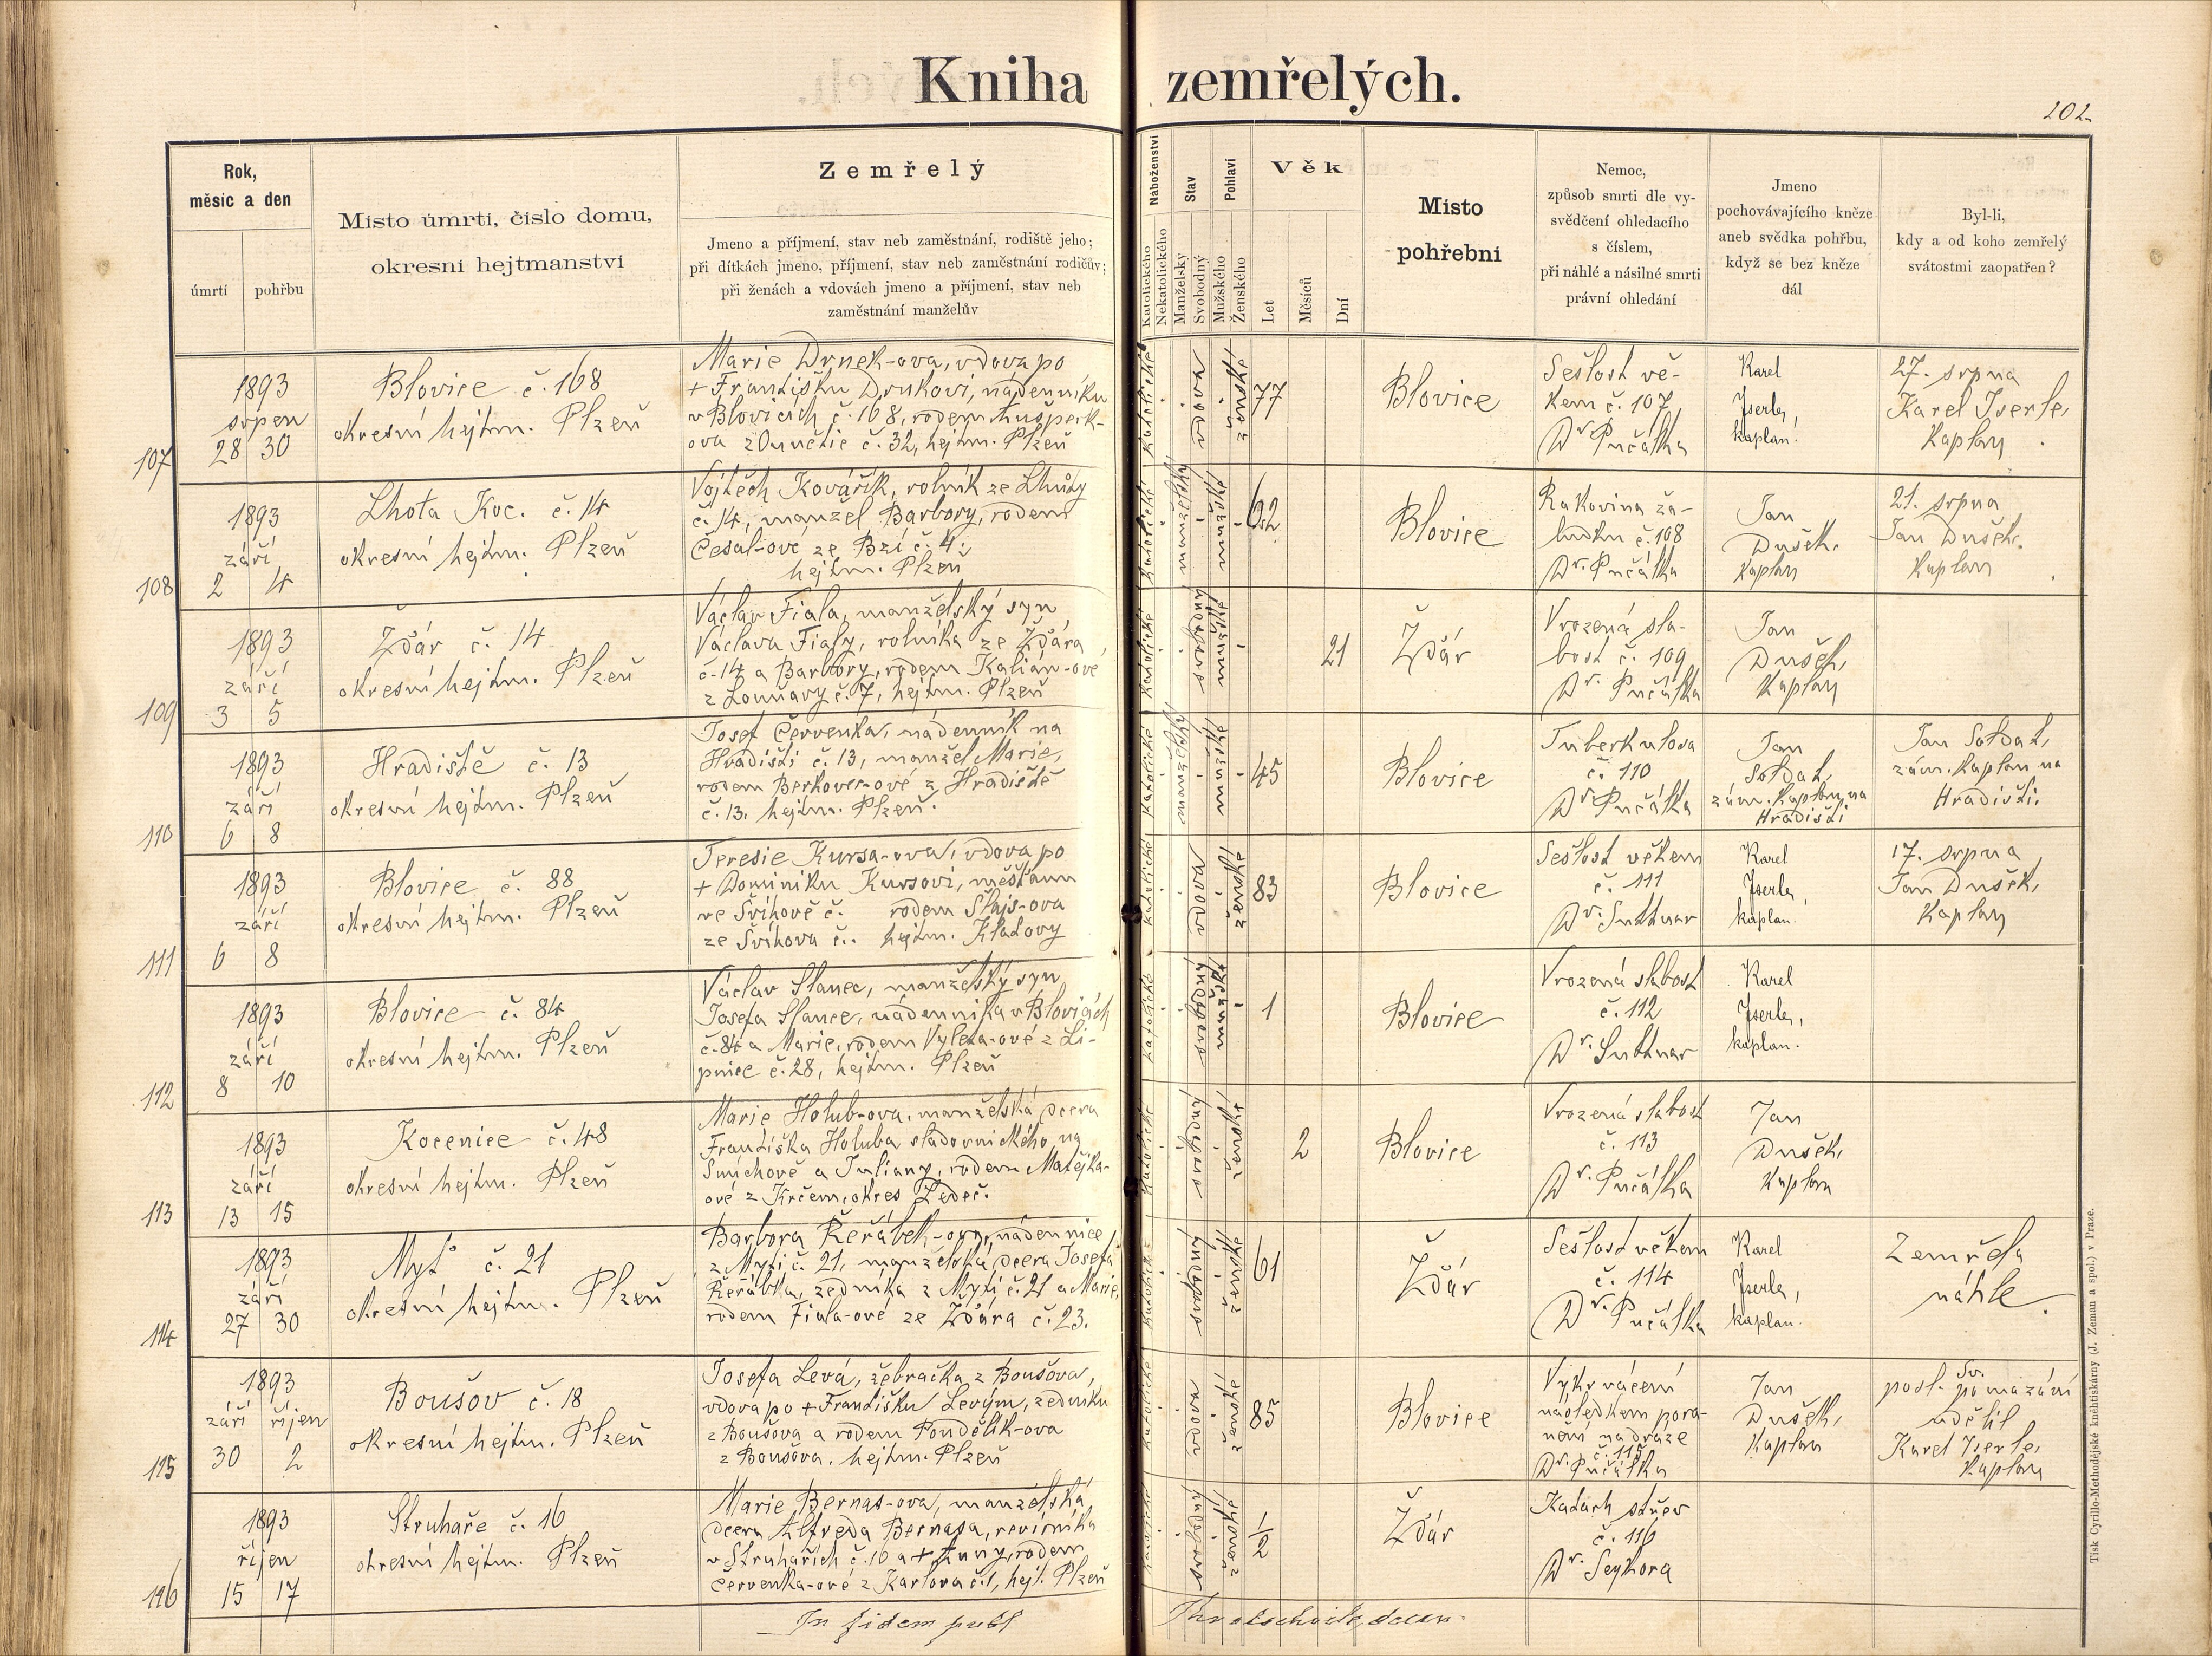 Kniha zemřelých.
202.
Rok,
měsíc a den
úmrtí
pohřbu
Místo úmrtí, číslo domu,
okresní hejtmanství
Zemřelý
Jmeno a příjmení, stav neb zaměstnání, rodiště jeho;
při dítkách jmeno, příjmení, stav neb zaměstnání rodičův;
při ženách a vdovách jmeno a příjmení, stav neb
zaměstnání manželův
Náboženství
Katolického
Nekatolického
Stav
Manželský
Svobodný
Pohlaví
Mužského
Ženského
Věk
Let
Měsíců
Dní
Místo
pohřební
Nemoc,
způsob smrti dle vy-
svědčení ohledacího
s číslem,
při náhlé a násilné smrti
právní ohledání
Jmeno
pochovávajícího kněze
aneb svědka pohřbu,
když se bez kněze
dál
Byl-li,
kdy a od koho zemřelý
svátostmi zaopatřen?
107
1893
srpen
28 30
Blovice č. 168
okresní hejtm. Plzeň
Marie Drnek-ova, vdova po
+ Františku Drnkovi, nádenníku
v Blovicích č. 168, rodem
ova z č. 32, hejtm. Plzeň
katolické
vdova
ženské
77
Blovice
Sešlost vě-
kem č. 107
Dr. Pučálka
Karel
Jserle,
kaplan.
27. srpna
Karel Jserle,
Kaplan
108
1893
září
2 4
Lhota Koc. č. 14
okresní hejtm. Plzeň
Vojtěch Kovářík, rolník ze Lhůty
č. 14, manžel Barbory, rodem
Česal-ové ze Bzí č. 4,
hejtm. Plzeň
katolické
mužské
62
Blovice
Rakovina ža-
ludku č. 108
Dr. Pučálka
Jan
Dušek,
Kaplan
21. srpna
Jan Dušek,
Kaplan
109
1893
září
3 5
Žďár č. 14
okresní hejtm. Plzeň
Václav Fiala, manželský syn
Václava Fialy, rolníka ze Žďára
č. 14 a Barbory, rodem Kalián-ové
z č. 7, hejtm. Plzeň
katolické
svobodný
21
Žďár
Vrozená sla-
bost č. 109
Dr. Pučálka
Jan
Dušek,
Kaplan
110
1893
září
6 8
Hradiště č. 13
okresní hejtm. Plzeň
Josef Červenka, nádenník na
Hradišti č. 13, manžel Marie,
rodem Berkovec-ové z Hradiště
č. 13, hejtm. Plzeň.
katolické
45
Blovice
Tuberkulosa
č. 110
Dr. Pučálka
Jan
Soldat,
zám. Kaplan na
Hradišti
Jan Soldat,
zám. Kaplan na
Hradišti.
111
1893
září
6 8
Blovice č. 88
okresní hejtm. Plzeň
Teresie Kursa-ova, vdova po
+ Dominiku Kursovi, měšťanu
ve Švihově č. rodem Šlajs-ova
ze Švihova č. hejtm. Klatovy
katolické
vdova
ženské
83
Blovice
Sešlost věkem
č. 111
Dr. Suttnar
Karel
Jserle,
kaplan.
17. srpna
Jan Dušek,
Kaplan
112
1893
září
8 10
Blovice č. 84
okresní hejtm. Plzeň
Václav Slanec, manželský syn
Josefa Slance, nádenníka v Blovicích
č. 84 a Marie, rodem Vyleta-ové z Li-
pnice č. 28, hejtm. Plzeň
katolické
svobodný
1
Blovice
Vrozená slabost
č. 112
Dr. Suttnar
Karel
Jserle,
kaplan.
113
1893
září
13 15
Kocenice č. 48
okresní hejtm. Plzeň
Marie Holub-ova, manželská dcera
Františka Holuba sladovnického na
Smíchově a Juliany, rodem Matějka-
ové z Krčem, okres Ledeč.
katolické
svobodný
ženské
2
Blovice
Vrozená slabost
č. 113
Dr. Pučálka
Jan
Dušek,
Kaplan
114
1893
září
27 30
Mýť č. 21
okresní hejtm. Plzeň
Barbora Řeřábek-ova, nádennice
z Mýti č. 21, manželská dcera Josefa
Řeřábka, zedníka z Mýti č. 21 a Marie,
rodem Fiala-ové ze Žďára č. 23.
katolické
svobodný
ženské
61
Žďár
Sešlost věkem
č. 114
Dr. Pučálka
Karel
Jserle,
kaplan.
Zemřela
náhle.
115
1893
září říjen
30 2
Boušov č. 18
okresní hejtm. Plzeň
Josefa Levá, žebračka z Boušova,
vdova po + Františku Levým, zedníku
z Boušova a rodem Pondělík-ova
z Boušova, hejtm. Plzeň
katolické
vdova
ženské
85
Blovice
Vykrvácení
následkem pora-
nění na dráze
č. 115
Dr. Pučálka
Jan
Dušek,
Kaplan
posl. sv. pomazání
udělil
Karel Jserle,
Kaplan
116
1893
říjen
15 17
Struhaře č. 16
okresní hejtm. Plzeň
Marie Bernas-ova, manželská
dcera Alfreda Bernasa, revírníka
v Struhařích č. 16 a + Anny, rodem
Červenka-ové z Karlova č. 1, hejt. Plzeň
katolické
svobodný
ženské
1/2
Žďár
Katarh střev
č. 116
Dr. Seykora
In fidem publ
decan.
Tisk Cyrillo-Methodějské knihtiskárny (J. Zeman a spol.) v Praze.